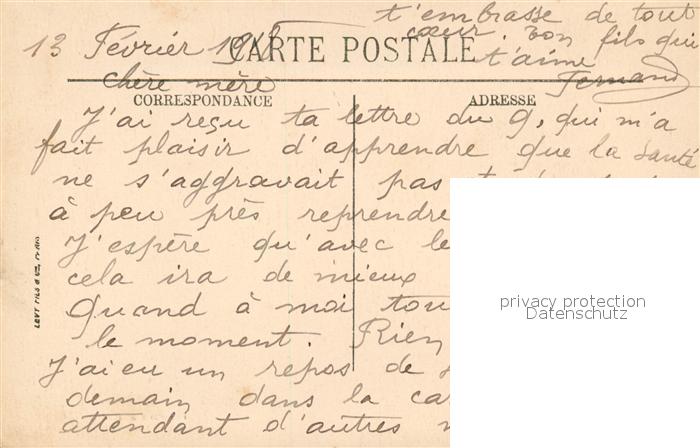 t'embrasse de tout
cœur. ton fils qui
t'aime
Fernand
13 Février
CARTE POSTALE
chère mère
CORRESPONDANCE
ADRESSE
J'ai reçu ta lettre du 9, qui m'a
fait plaisir d'apprendre que la santé
ne s'aggravait pas
à peu près reprendre
J'espère qu'avec le
cela ira de mieux
Quand à moi tou
le moment. Rien
J'ai eu un repos de
demain dans la ca
attendant d'autres
LEVY FILS & Cie, PARIS
privacy protection
Datenschutz